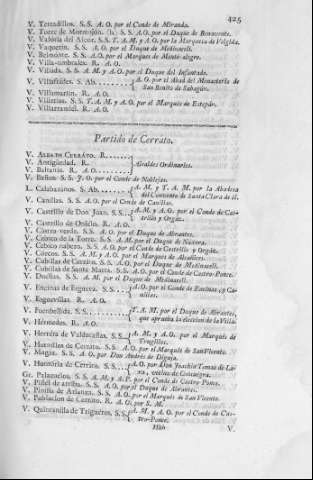 425
V. Torredillos. S. S. A. O. por el Conde de Miranda.
V. Torre de Mormojón. (b) S. S. A. O. por el Duque de Benavente.
V. Valoria del Alcor. S. S. T. A. M. y A. O. por la Marquesa de
V. Vaquerin. S. S. A. O. por el Duque de Medinaceli.
V. Belmonte. S. S. A. O. por el Marques de Monte-alegre.
V. Villa-umbrales. R. A. O.
V. Villada. S. S. A. M. y A. O. por el Duque del Infantado.
V. Villafrades. S. Ab. A. O. por el Abad del Monasterio de San Benito de Sahagún.
V. Villamartin. R. A. O.
V. Villerias. S. S. T. A. M. y A. O. por el Marqués de Estepár.
V. Villarramiel. R. A. O.
Partido de Cerrato.
V. ALBA DE CERRATO. R.
V. Antiguedad. R. Alcaldes Ordinarios.
V. Baltanás. R. A. O.
V. Baños. S. S. J. O. por el Conde de Noblejas.
L. Calabazanos. S. Ab. A. M. y T. A. M. por la Abadesa del Convento de Santa Clara de él.
V. Canillas. S. S. A. O. por el Conde de Canillas.
V. Castrillo de Don Juan. S. S. A. M. y A. O. por el Conde de Castrillo y Orgáz.
V. Castrillo de Onielo. R. A. O.
V. Cobos de la Torre. S. S. A. M. por el Duque de Naxera.
V. Cubillas de Cerrato. S. S. A. O. por el Duque de Medinaceli.
V. Cubillas de Santa Marta. S. S. A. O. por el Conde de Castro-Ponce.
V. Dueñas. S. S. A. M. por el Duque de Medinaceli.
V. Encinas de Esgueva. S. S. A. O. por el Conde de Encinas, y Canillas.
V. Esguevillas. R. A. O.
V. Fuembellida. S. S. T. A. M. por el Duque de Abrantes, que aprueba la eleccion de la Villa.
V. Hermedes. R. A. O.
V. Herrera de Valdecañas. S. S. A. M. y A. O. por el Marqués de
V. Hornillos de Cerrato. S. S. A. O. por el Marqués de San Vicente.
V. Magáz. S. S. A. O. por Don Andrés de
V. Hontoria de Cerrato. S. S. A. O. por Don Joachin Tomás de
Gr. Palazuelos. S. S. A. M. y A. O. por el Conde de Castro Ponce.
V. Piñél de arriba. S. S. A. O. por el Duque de Abrantes.
V. Pinilla de S. S. A. O. por el Marqués de San Vicente.
V. Poblacion de Cerrato. R. A. O. por S. M.
V. Quintanilla de Trigueros. S. S. A. M. y A. O. por el Conde de Castro-Ponce.
Hhh V.